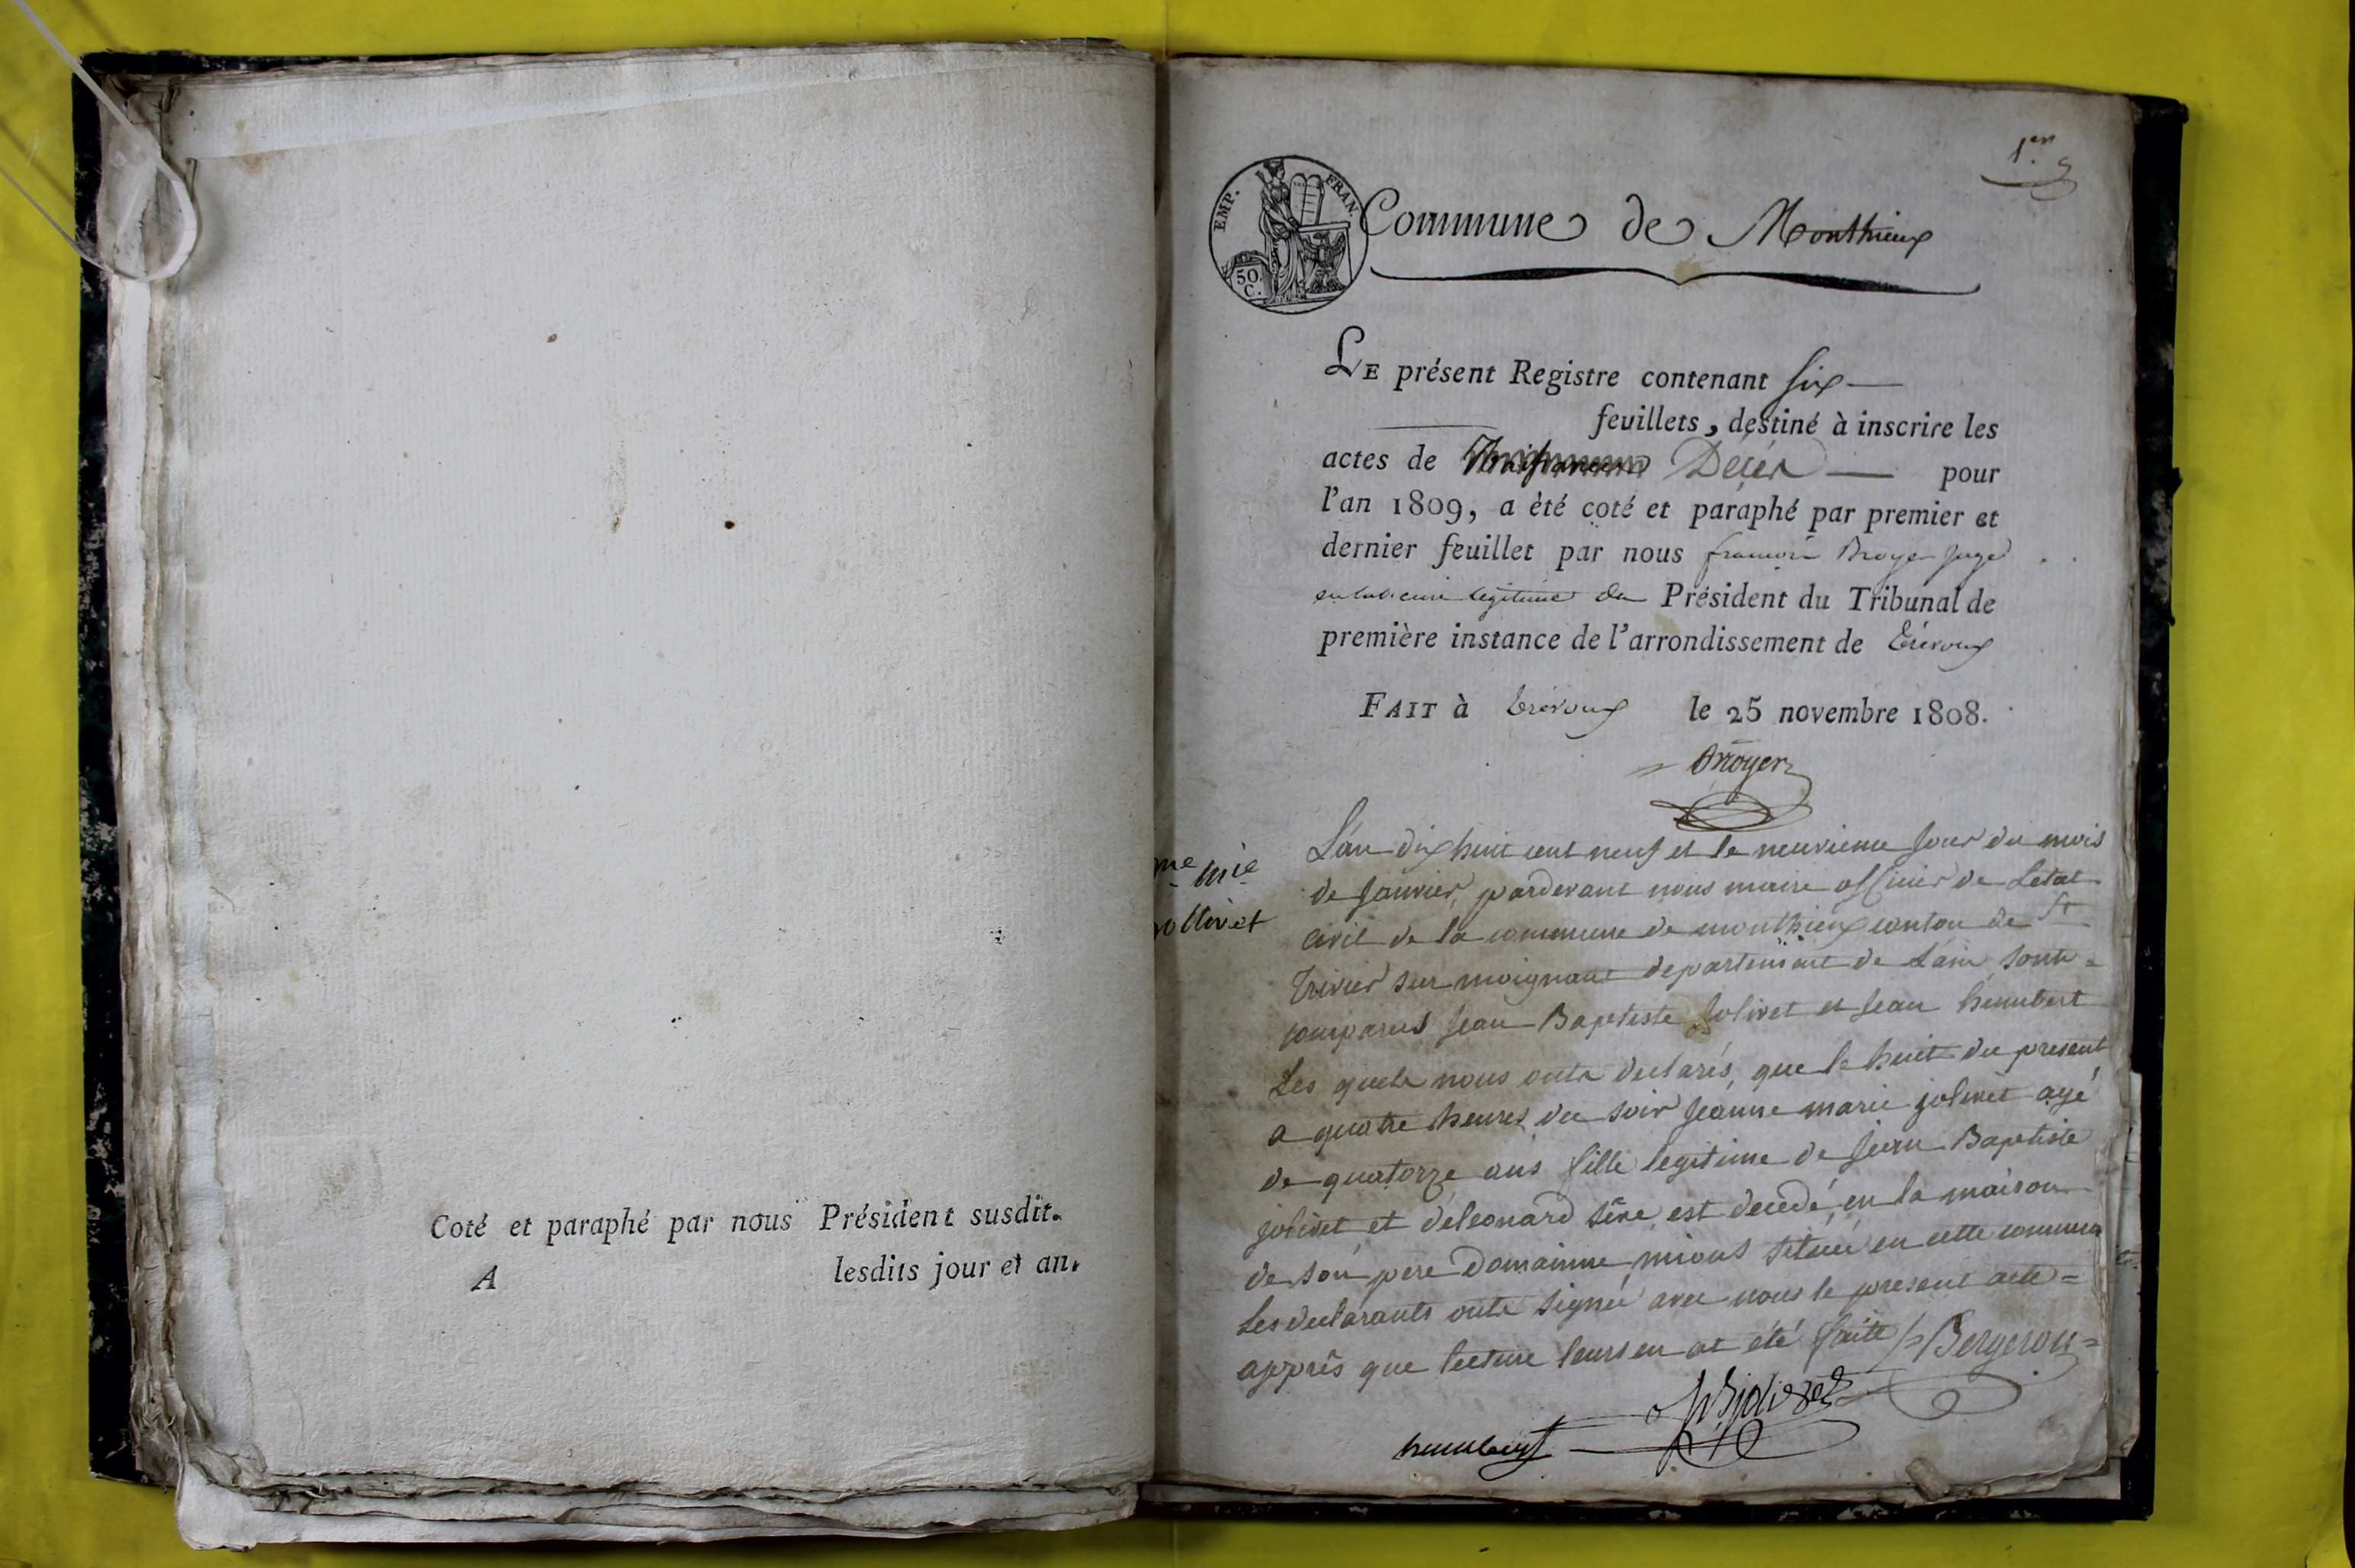 Coté et paraphé par nous Président susdit.
A lesdits jour et an.
1.er
EMP. FRAN.
50 C.
Commune de Monthieux
LE présent Registre contenant six
feuillets, destiné à inscrire les
actes de Décès pour
l'an 1809, a été coté et paraphé par premier et
dernier feuillet par nous françois Broyer Juge
legitime du Président du Tribunal de
première instance de l'arrondissement de Trévoux
FAIT à Trévoux le 25 novembre 1808.
Broyer
me mie
ollivet
L'an dix huit cent neuf et le neuvieme jour du mois
de janvier, pardevant nous maire officier de Letat
civil de la commune de monthieux canton de St
Trivier sur moignant departement de L'ain, sont =
comparus jean Baptiste Jolivet et jean humbert
Les quels nous onts declarés, que le huit du present
a quatre heures du soir jeanne marie jolivet agé
de quatorze ans fille legitime de jean Baptiste
jolivet et deleonard sève est decedé en la maison
de son pere Domainne mions situeé en cette commune
Les declarants onts signeé avec nous le present acte =
apprés que lecture leurs en at été faite Bergeron =
JB jolivet
humbert